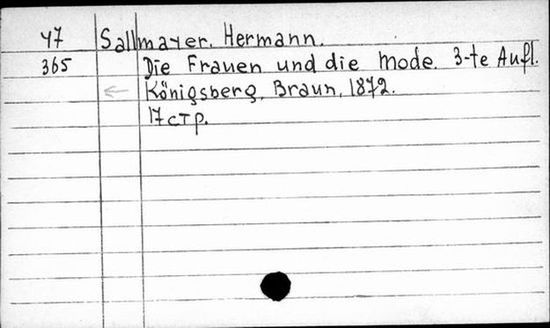 47 Sallmayer, Hermann.
365 Die Frauen und die Mode. 3-te Aufl.
Königsberg, Braun, 1872.
17 стр.